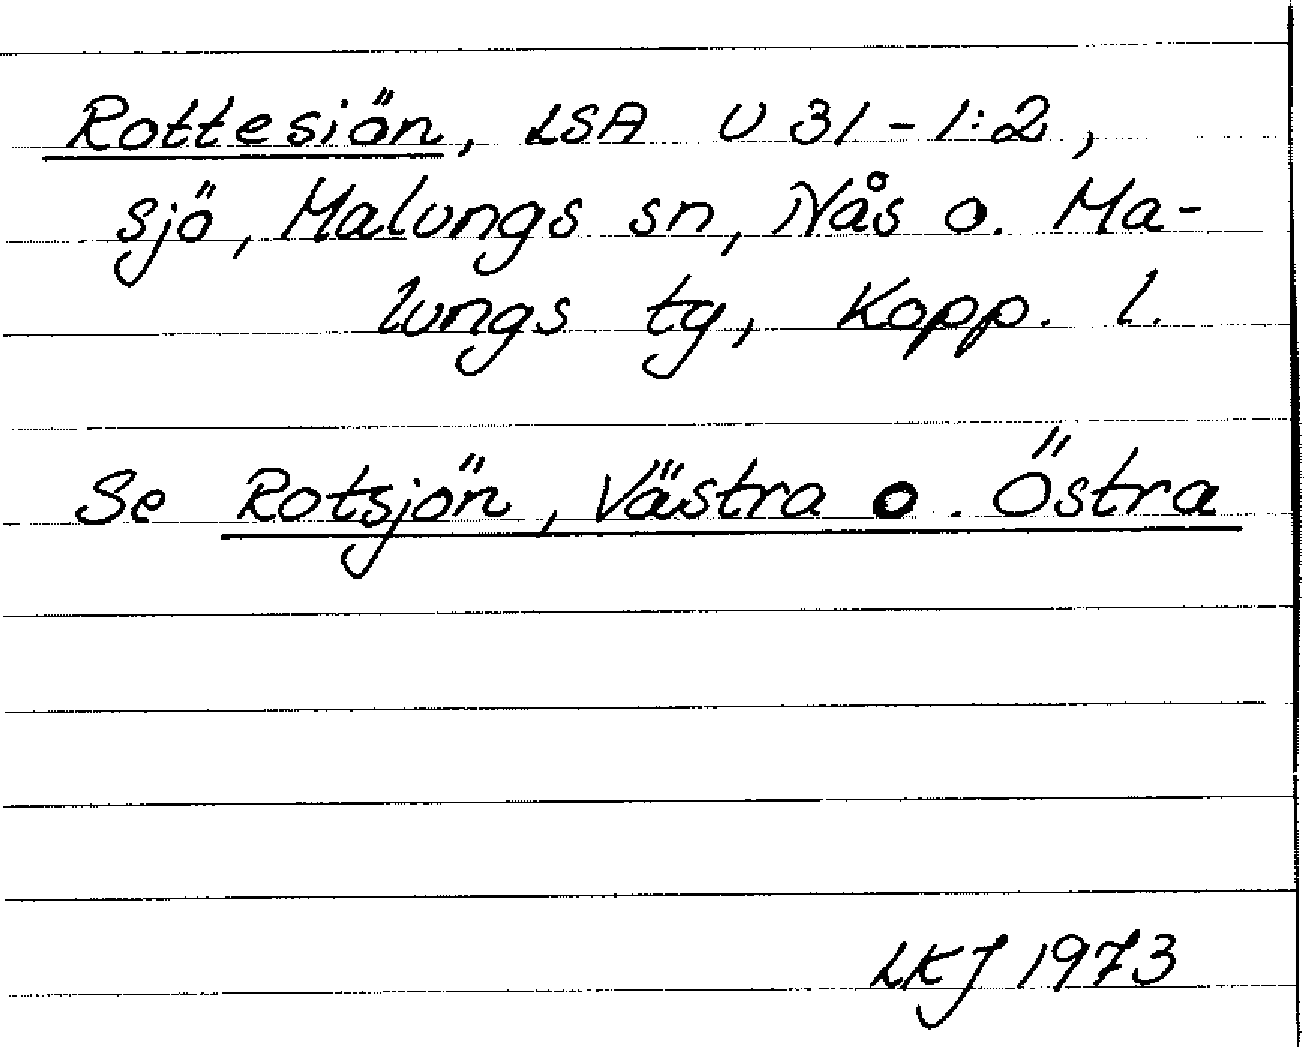 Rottesiön, LSA U 31-1:2,
sjö, Malungs sn, Nås o. Ma-
lungs tg, Kopp. l.
Se Rotsjön, Västra o. Östra
LKJ 1973